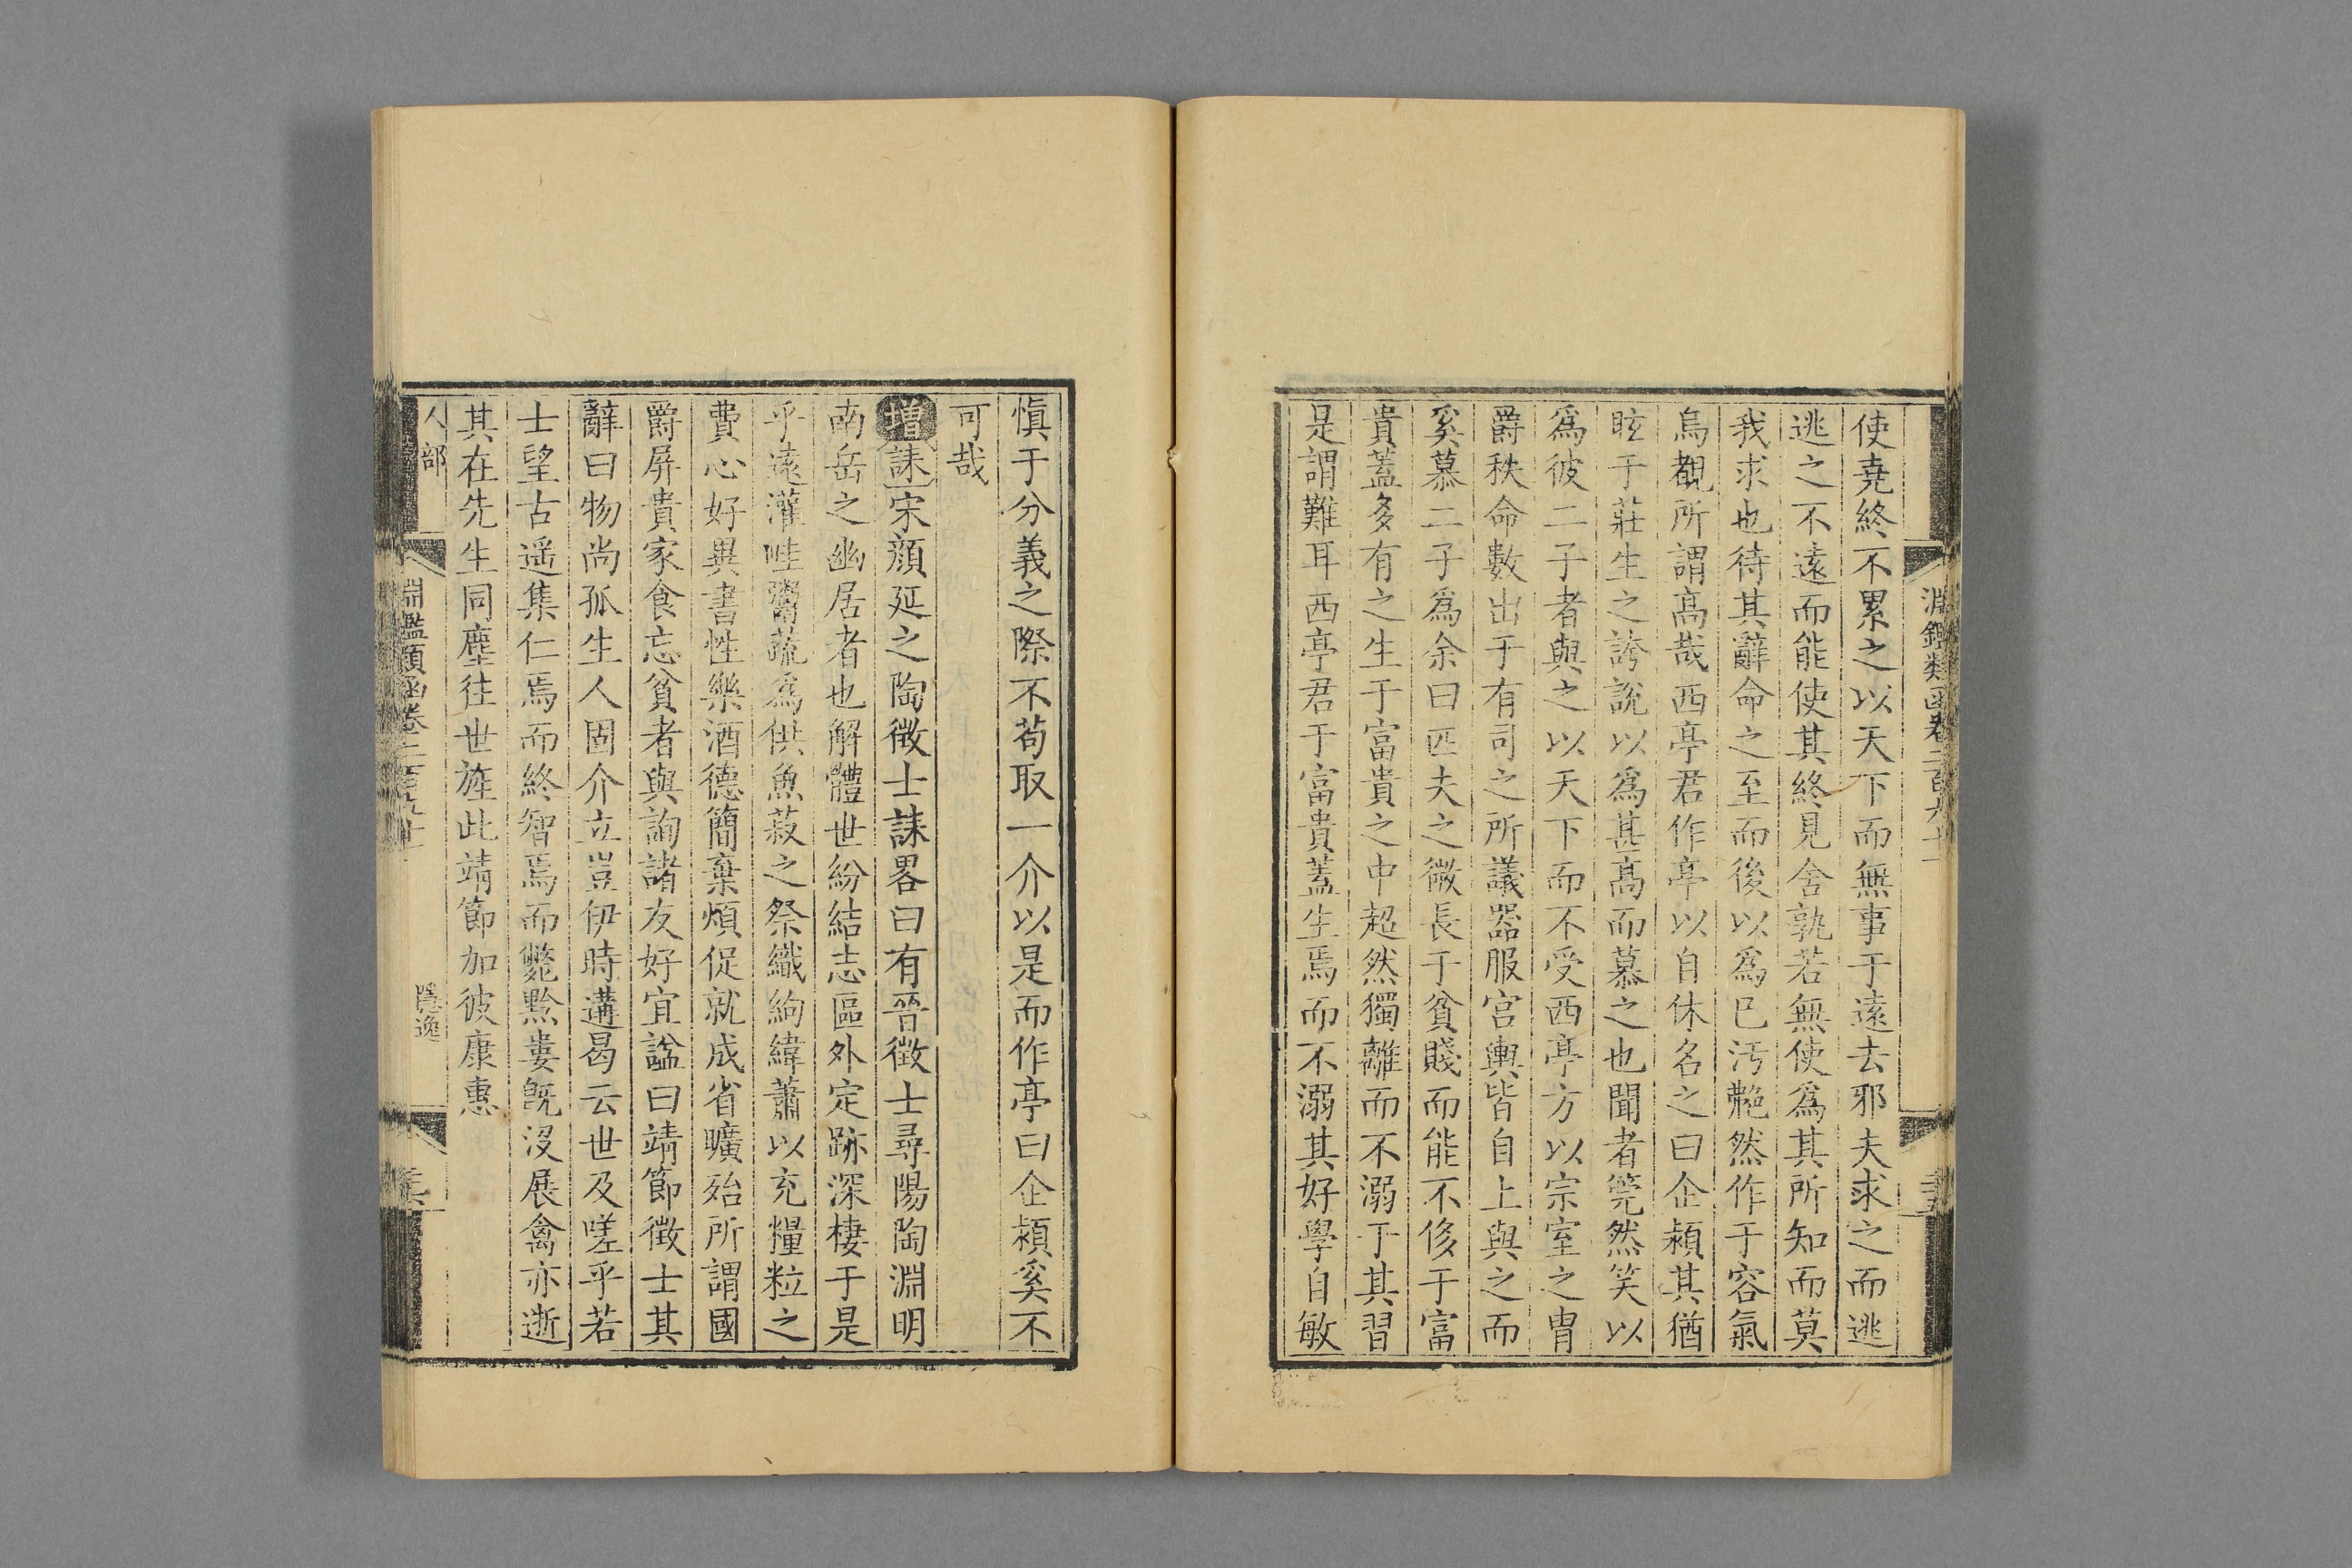 使堯終不累之以天下而無事于遠去邪夫求之而逃
逃之不遠而能使其終見舍孰若無使爲其所知而莫
我求也待其辭命之至而後以爲已汚艴然作于容氣
烏覩所謂高哉西亭君作亭以自休名之曰企潁其猶
眩于莊生之誇說以爲甚高而慕之也聞者筦然笑以
爲彼二子者與之以天下而不受西亭方以宗室之胄
爵秩命數出于有司之所議器服宫輿皆自上與之而
奚慕二子爲余曰匹夫之微長于貧賤而能不侈于富
貴蓋多有之生于富貴之中超然獨離而不溺于其習
是謂難耳西亭君于富貴蓋生焉而不溺其好學自敏
慎于分義之際不茍取一介以是而作亭曰企潁奚不
可哉
增誄宋顔延之陶徵士誄畧曰有晉徵士尋陽陶淵明
南岳之幽居者也解體世紛結志區外定跡深棲于是
乎遠灌畦鬻蔬爲供魚菽之祭織絇緯蕭以充糧粒之
費心好異書性樂酒德簡棄煩促就成省曠殆所謂國
爵屏貴家食忘貧者與詢諸友好宜諡曰靖節徵士其
辭曰物尚孤生人固介立豈伊時遘曷云世及嗟乎若
士望古遥集仁焉而終智焉而斃黔婁旣沒展禽亦逝
其在先生同塵徃世旌此靖節加彼康惠
人部
淵鑑類函卷二百九十
隱逸